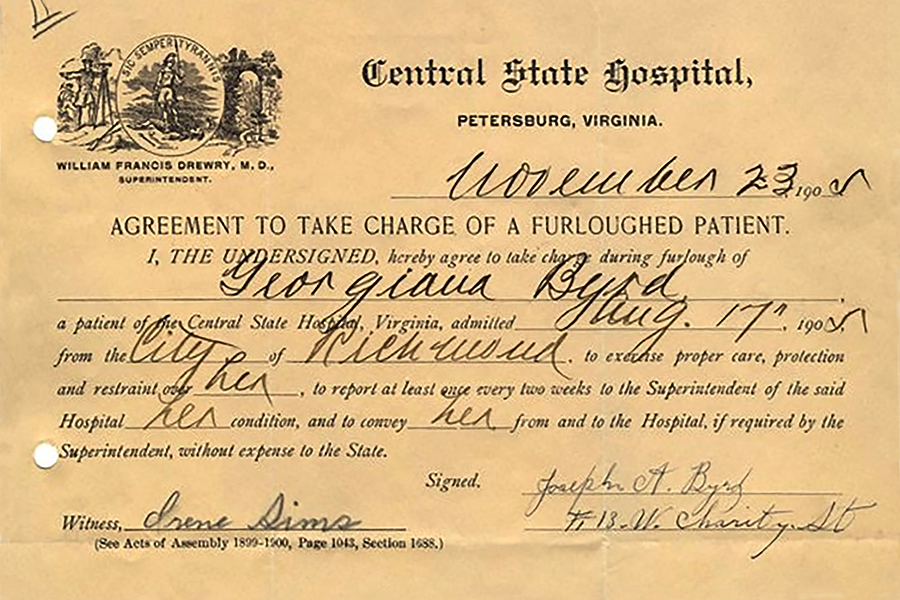 SIC SEMPER TYRANNIS
Central State Hospital,
PETERSBURG, VIRGINIA.
WILLIAM FRANCIS DREWRY, M. D.,
SUPERINTENDENT.
November 23, 1905
AGREEMENT TO TAKE CHARGE OF A FURLOUGHED PATIENT.
I, THE UNDERSIGNED, hereby agree to take charge during furlough of
Georgiana Byrd
a patient of the Central State Hospital, Virginia, admitted Aug. 17", 1905,
from the City of Richmond, to exercise proper care, protection
and restraint over her, to report at least once every two weeks to the Superintendent of the said
Hospital her condition, and to convey her from and to the Hospital, if required by the
Superintendent, without expense to the State.
Signed, Joseph A. Byrd
Witness, Irene Sims # 13. W. Charity. St
(See Acts of Assembly 1899-1900, Page 1043, Section 1688.)